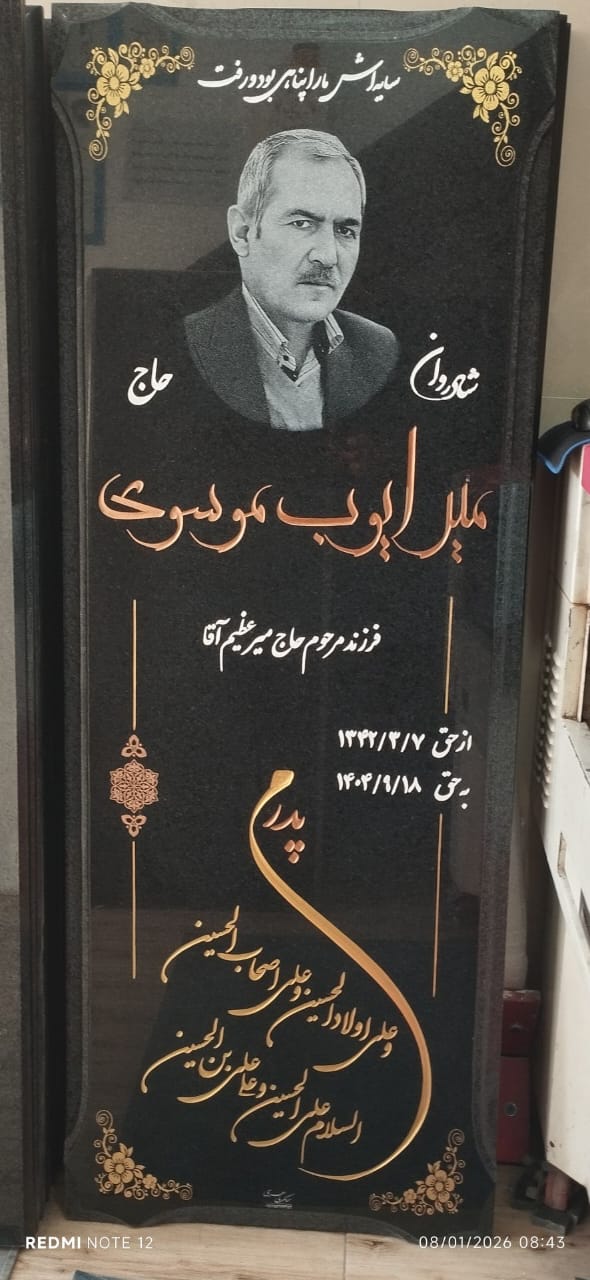 سایه‌اش ما را پناهی بود و رفت
شادروان
حاج
میر ایوب موسوی
فرزند مرحوم حاج میر عظیم آقا
از حق ۱۳۴۲/۳/۷
به حق ۱۴۰۴/۹/۱۸
پدرم
السلام علی الحسین
وعلی علی بن الحسین
وعلی اولاد الحسین
وعلی اصحاب الحسین
REDMI NOTE 12
08/01/2026 08:43